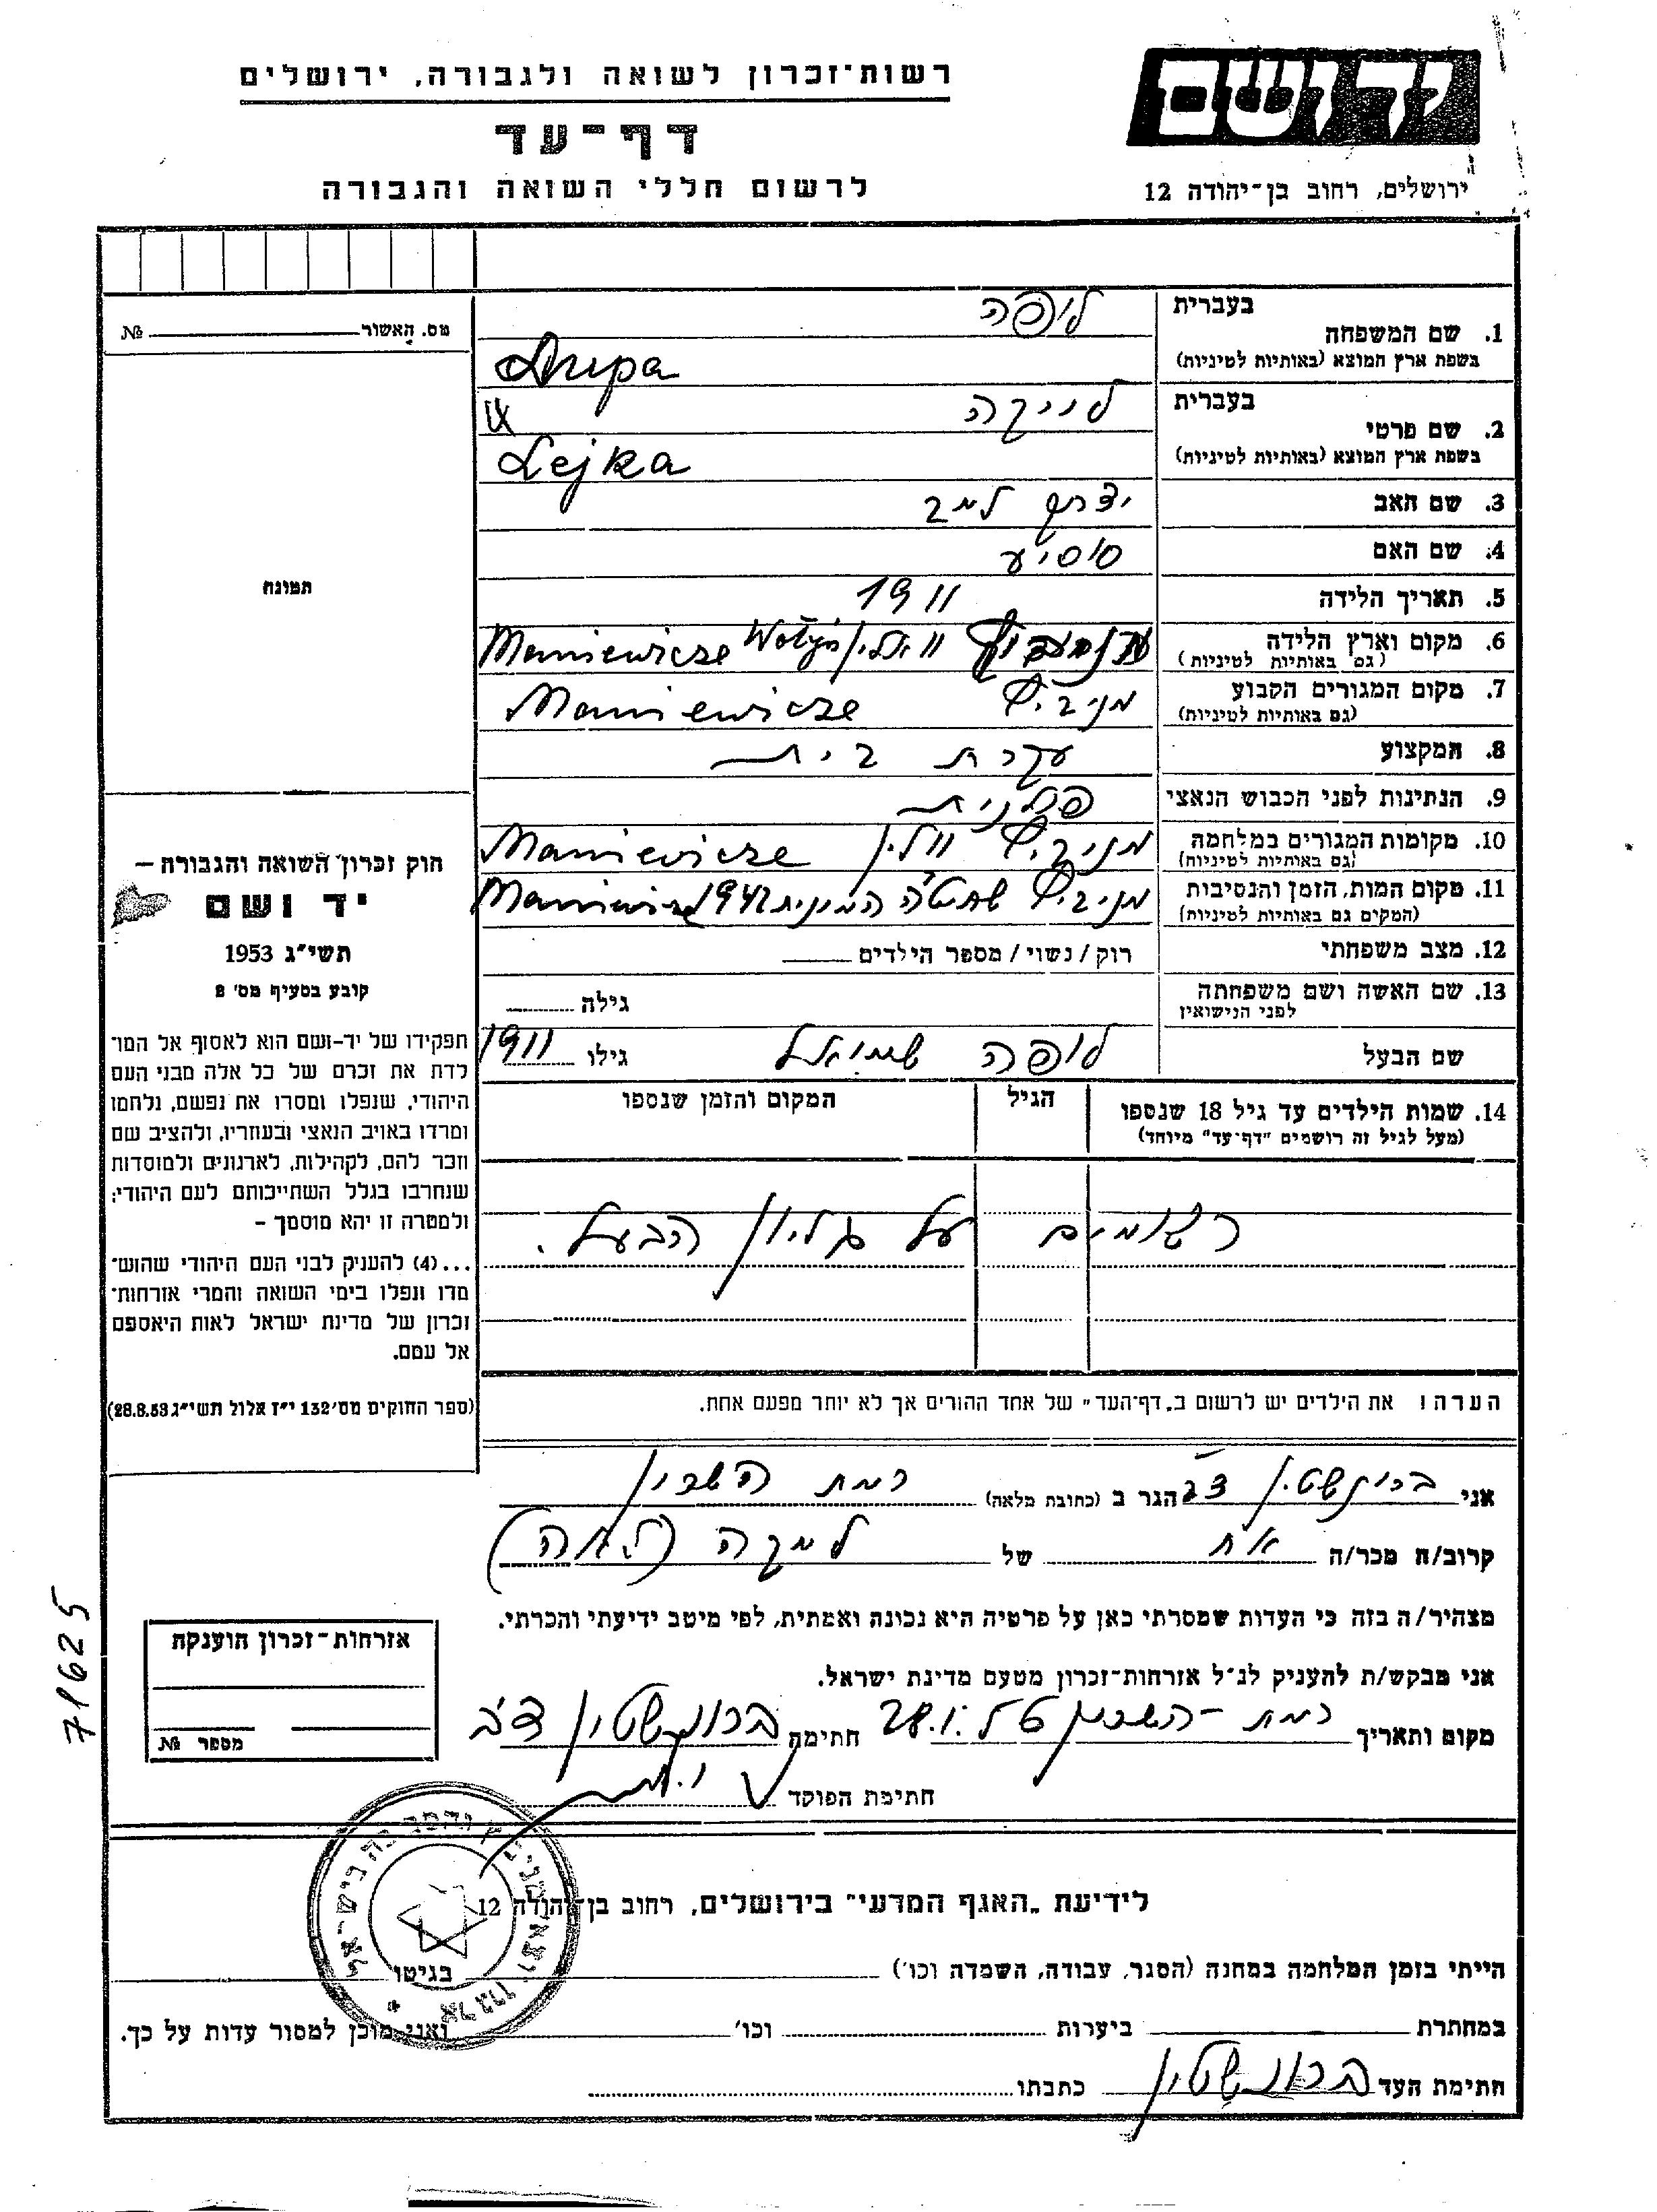 רשות־זכרון לשואה ולגבורה, ירושלים
יד ושם
דף־עד
לרשום חללי השואה והגבורה
ירושלים, רחוב בן־יהודה 12
מס. האשור № 
תמונה
חוק זכרון השואה והגבורה –
יד ושם
תשי״ג 1953
קובע בסעיף מס׳ 2
תפקידו של יד־ושם הוא לאסוף אל המו־
לדת את זכרם של כל אלה מבני העם
היהודי, שנפלו ומסרו את נפשם, נלחמו
ומרדו באויב הנאצי ובעוזריו, ולהציב שם
וזכר להם, לקהילות, לארגונים ולמוסדות
שנחרבו בגלל השתייכותם לעם היהודי;
ולמטרה זו יהא מוסמך –
...(4) להעניק לבני העם היהודי שהוש־
מדו ונפלו בימי השואה והמרי אזרחות־
זכרון של מדינת ישראל לאות היאספם
אל עמם.
(ספר החוקים מס׳ 132 י״ז אלול תשי״ג 28.8.53)
בעברית לופה
1. שם המשפחה
בשפת ארץ המוצא (באותיות לטיניות) Lupa
בעברית לייקה
2. שם פרטי
בשפת ארץ המוצא (באותיות לטיניות) Lejka
3. שם האב יוסף
4. שם האם סוסיע
5. תאריך הלידה 1911
6. מקום וארץ הלידה ווALין Wołyń Maniewicze
(גם באותיות לטיניות)
7. מקום המגורים הקבוע מניביץ Maniewicze
(גם באותיות לטיניות)
8. המקצוע עקרת בית
9. הנתינות לפני הכבוש הנאצי פולנית
10. מקומות המגורים במלחמה מניביץ וולין Maniewicze
(גם באותיות לטיניות)
11. מקום המות, הזמן והנסיבות מניביץ שחיטה המונית 1942
(המקום גם באותיות לטיניות)
12. מצב משפחתי רוק / נשוי / מספר הילדים
13. שם האשה ושם משפחתה גילה
לפני הנישואין
שם הבעל לופה שמואל גילו 1911
14. שמות הילדים עד גיל 18 שנספו הגיל המקום והזמן שנספו
(מעל לגיל זה רושמים "דף־עד" מיוחד)
רשומים על גליון הבעל.
הערה! את הילדים יש לרשום ב„דף־העד״ של אחד ההורים אך לא יותר מפעם אחת.
אני ברונשטין צבי הגר ב (כתובת מלאה) רמת השרון
קרוב/ה מכר/ה אח של לייקה (לאה)
מצהיר/ה בזה כי העדות שמסרתי כאן על פרטיה היא נכונה ואמתית, לפי מיטב ידיעתי והכרתי.
אני מבקש/ת להעניק לנ״ל אזרחות־זכרון מטעם מדינת ישראל.
מקום ותאריך רמת-השרון חתימה ברונשטין צבי
חתימת הפוקד
אזרחות־זכרון הוענקה
מספר №
71625
לידיעת „האגף המדעי״ בירושלים, רחוב בן־יהודה 12
הייתי בזמן המלחמה במחנה (הסגר, עבודה, השמדה וכו׳) בגיטו
במחתרת ביערות וכו׳ ואני מוכן למסור עדות על כך.
חתימת העד ברונשטין כתבתו